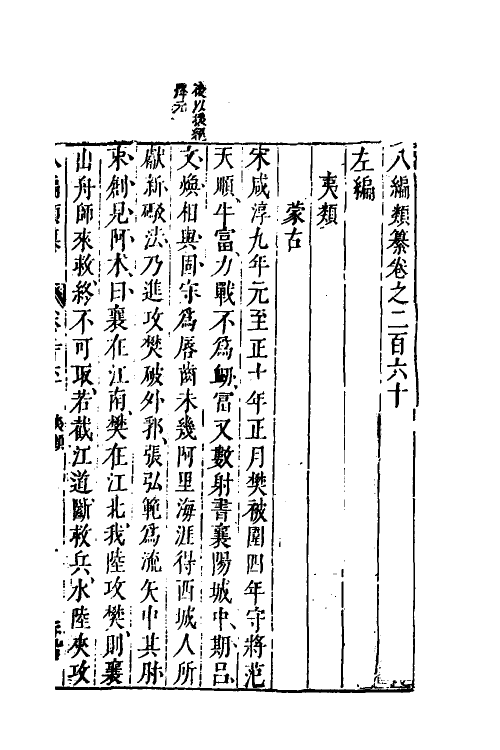 八編類纂卷之二百六十
左編
夷類
蒙古
宋咸淳九年元至正十年正月樊被圍四年守將范
天順牛富力戰不為衂富又數射書襄陽城中期呂
文煥相與固守為唇齒未幾阿里海涯得西城人所
獻新礮法乃進攻樊破外郛張弘範為流矢中其肘
束創見阿术曰襄在江南樊在江北我陸攻樊則襄
出舟師來救終不可取若截江道斷救兵水陸夾攻
後以襄